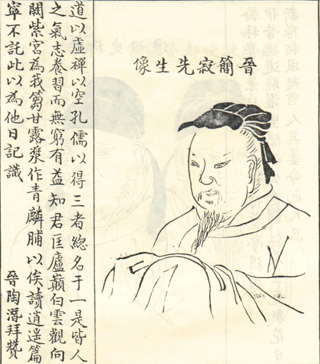 晉簡寂先生像
道以虛禪以空孔儒以得三者總名于一是皆人
之氣志養習而無窮有益知君匡廬巔白雲觀向
闕紫宮為我芻甘露漿作青麟脯以俟讀逍遙篇
寧不託此以為他日記識 晉陶潛拜贊